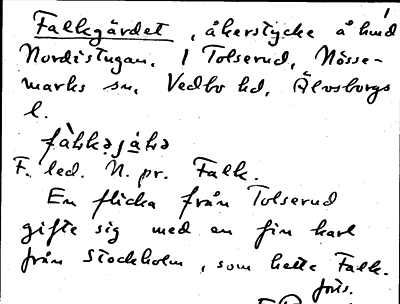 Falkgärdet, åkerstycke å hmd
Nordistugan, i Tolserud, Nösse-
marks sn, Vedbo hd, Älvsborgs
l.
F. led. N. pr. Falk.
En flicka från Tolserud
gifte sig med en fin karl
från Stockholm, som hette Falk.
forts.